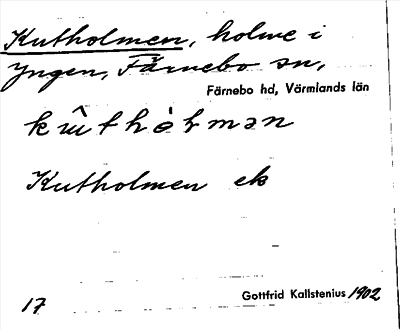 Kutholmen, holme i
Yngen, Färnebo sn,
Färnebo hd, Värmlands län
Kutholmen ek
Gottfrid Kallstenius 1902
17